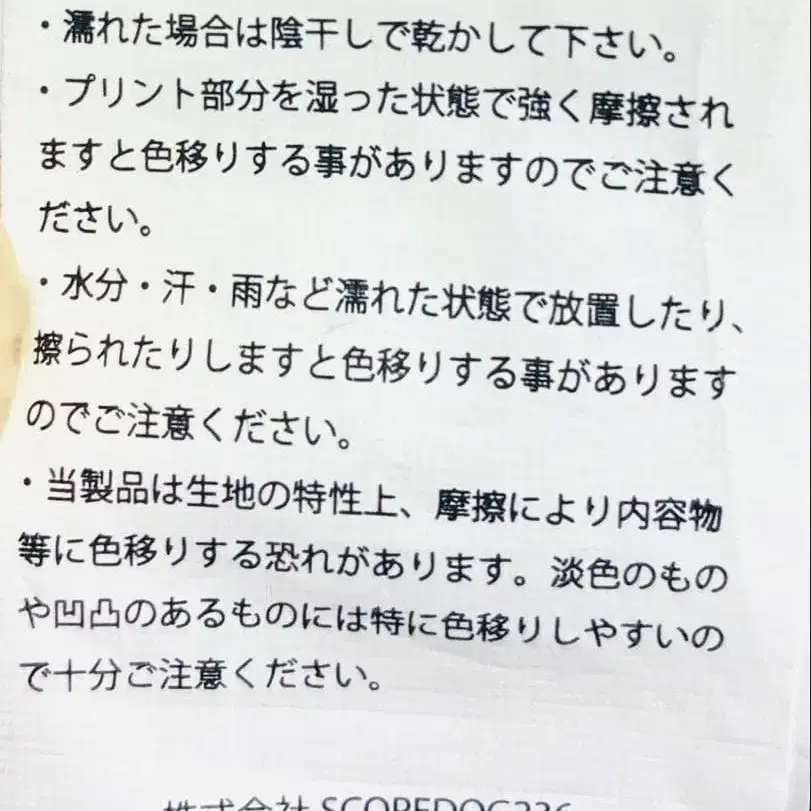 ・濡れた場合は陰干しで乾かして下さい。
・プリント部分を湿った状態で強く摩擦され
ますと色移りする事がありますのでご注意く
ださい。
・水分・汗・雨など濡れた状態で放置したり、
擦られたりしますと色移りする事があります
のでご注意ください。
・当製品は生地の特性上、摩擦により内容物
等に色移りする恐れがあります。淡色のもの
や凹凸のあるものには特に色移りしやすいの
で十分ご注意ください。
株式会社 SCOPEDOG236